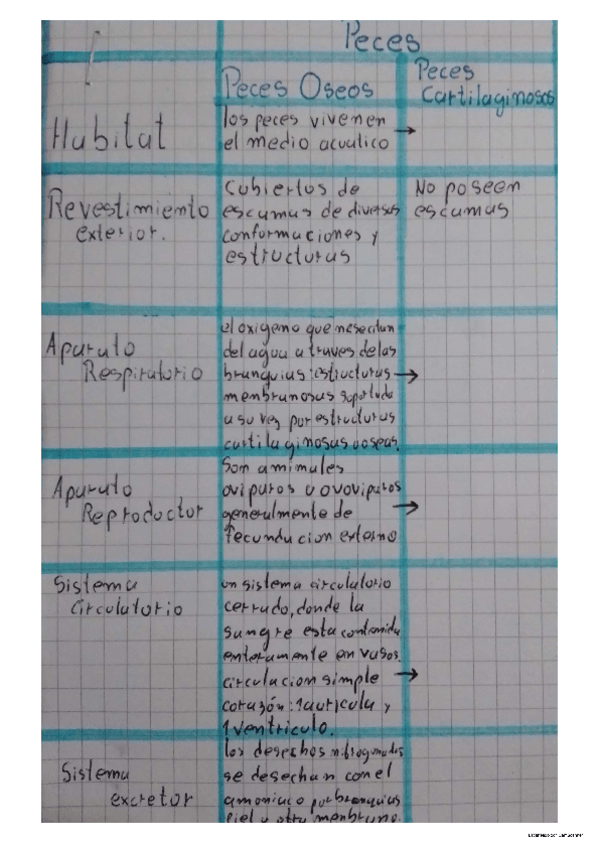 Peces
Peces Oseos
Peces
Cartilaginosos
Habitat
los peces viven en
el medio acuatico
→
Revestimiento
exterior.
Cubiertos de
escamas de diversas
conformaciones y
estructuras
No poseen
escamas
Aparato
Respiratorio
el oxigeno que nesecitan
del agua a traves de las
branquias: estructuras
membranosas soportada
a su vez por estructuras
cartilaginosas o oseas.
→
Aparato
Reproductor
Son amimales
oviparos u ovoviparos
generalmente de
fecundacion externo
→
Sistema
circulatorio
un sistema circulatorio
cerrado, donde la
sangre esta contenida
enteramente en vasos.
circulacion simple
corazón: 1 auricula y
1 ventriculo.
→
Sistema
excretor
los desechos nitrogenados
se desechan con el
amoniaco por branquias
piel u otra membrana.